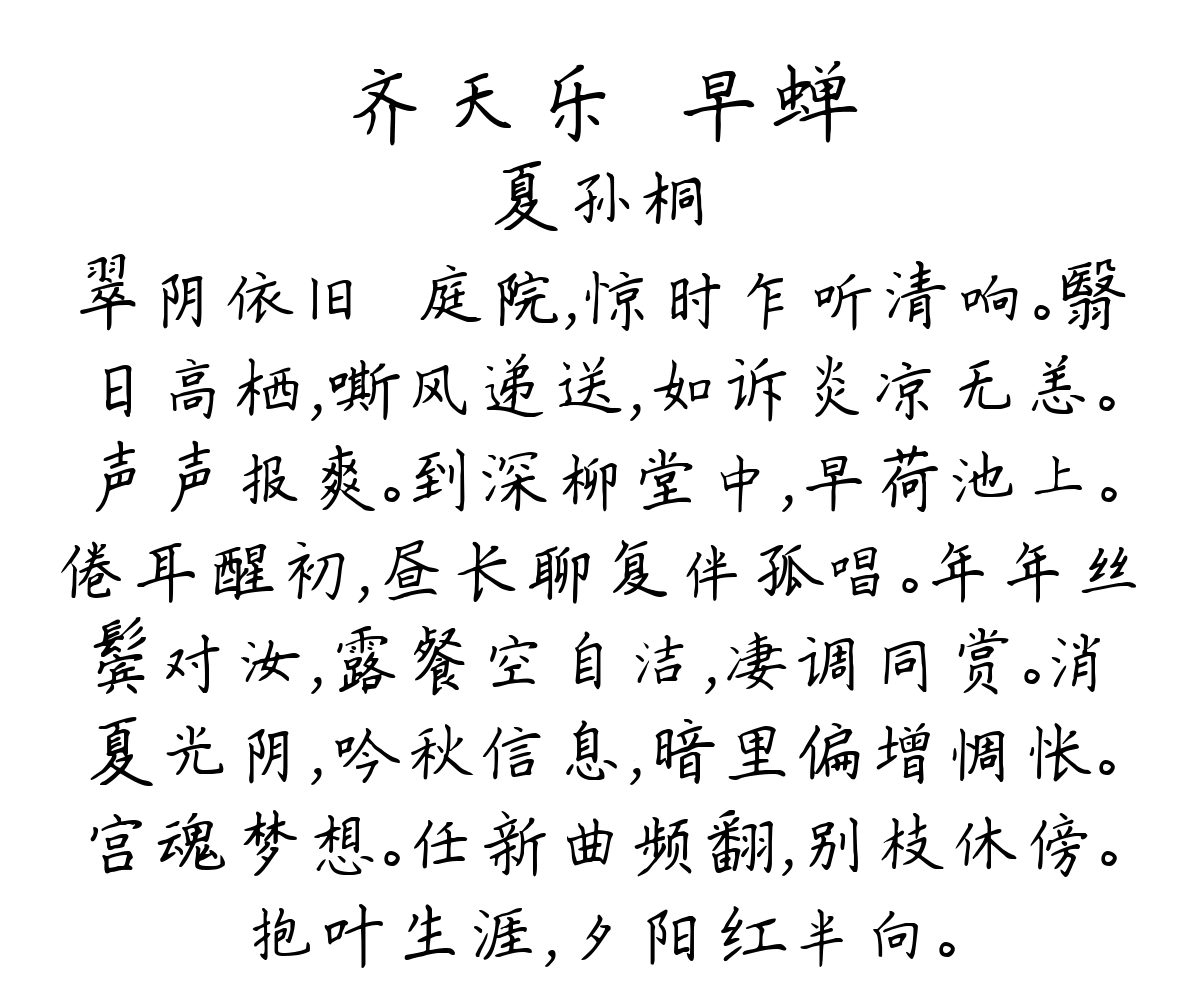 齐天乐 早蝉
夏孙桐
翠阴依旧 庭院,惊时乍听清响。翳
日高栖,嘶风递送,如诉炎凉无恙。
声声报爽。到深柳堂中,早荷池上。
倦耳醒初,昼长聊复伴孤唱。年年丝
鬓对汝,露餐空自洁,凄调同赏。消
夏光阴,吟秋信息,暗里偏增惆怅。
宫魂梦想。任新曲频翻,别枝休傍。
抱叶生涯,夕阳红半向。